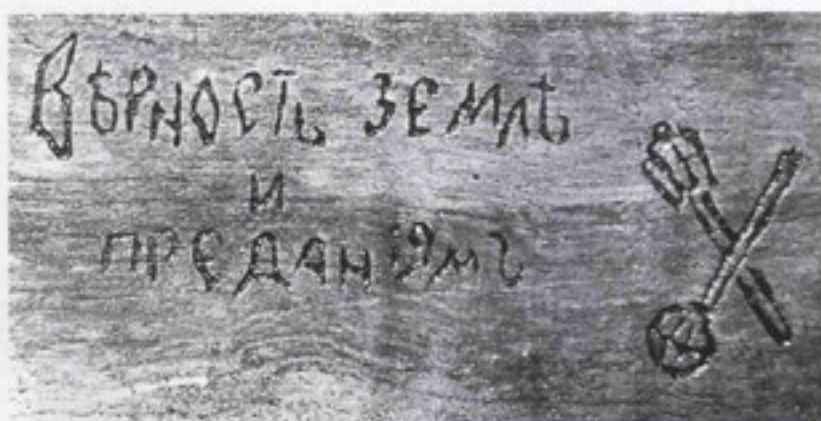 ВѢРНОСТЬ ЗЕМЛѢ
И
ПРЕДАНІЯМЪ